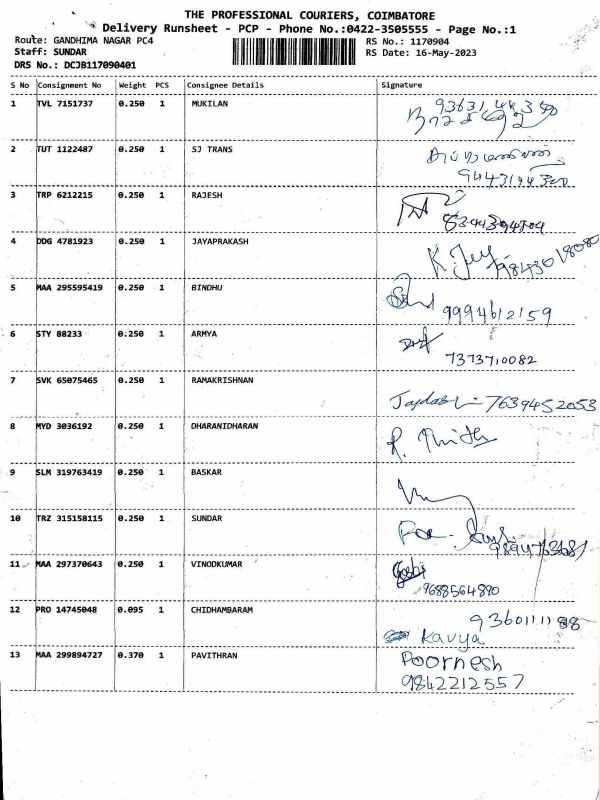 THE PROFESSIONAL COURIERS, COIMBATORE
Delivery Runsheet - PCP - Phone No.:0422-3505555 - Page No.:1
Route: GANDHIMA NAGAR PC4
RS No.: 1170904
Staff: SUNDAR
RS Date: 16-May-2023
DRS No.: DCJB117090401
S No Consignment No Weight PCS Consignee Details Signature
1 TVL 7151737 0.250 1 MUKILAN
2 TUT 1122487 0.250 1 SJ TRANS
3 TRP 6212215 0.250 1 RAJESH
4 DDG 4781923 0.250 1 JAYAPRAKASH
5 MAA 295595419 0.250 1 BINDHU
9994612159
6 STY 88233 0.250 1 ARMYA
7373710082
7 SVK 65075465 0.250 1 RAMAKRISHNAN
7639452053
8 MYD 3036192 0.250 1 DHARANIDHARAN
9 SLM 319763419 0.250 1 BASKAR
10 TRZ 315158115 0.250 1 SUNDAR
11 MAA 297370643 0.250 1 VINODKUMAR
9688564890
12 PRO 14745048 0.095 1 CHIDHAMBARAM
Kavya
13 MAA 299894727 0.370 1 PAVITHRAN
Poornesh
9842212557